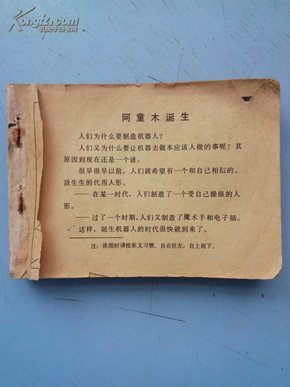 Kongfz.com
阿童木诞生
人们为什么要制造机器人?
人们又为什么要让机器去做本应该人做的事呢?其
原因到现在还是一个谜。
很早很早以前,人们就希望有一个和自己相似的、
活生生的代用人形。
——在某一时代,人们制造了一个受自己操纵的人
形。
——过了一个时期,人们又制造了魔术手和电子脑。
这样,诞生机器人的时代很快就到来了。
注:读图时请按原文习惯,自右往左,自上而下。